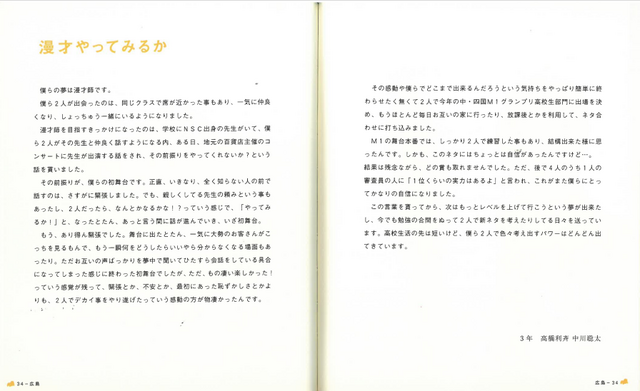 漫才やってみるか
僕らの夢は漫才師です。
僕ら2人が出会ったのは、同じクラスで席が近かった事もあり、一気に仲良
くなり、しょっちゅう一緒にいるようになりました。
漫才師を目指すきっかけになったのは、学校にNSC出身の先生がいて、僕
ら2人がその先生と仲良く話すようになる内、ある日、地元の百貨店主催のコ
ンサートに先生が出演する話をされ、その前振りをやってくれないか?という
話を貰いました。
その前振りが、僕らの初舞台です。正直、いきなり、全く知らない人の前で
話すのは、さすがに緊張しました。でも、親しくしてる先生の頼みという事も
あったし、2人だったら、なんとかなるかな!?っていう感じで、「やってみ
るか!」と、なったとたん、あっと言う間に話が進んでいき、いざ初舞台。
もう、あり得ん緊張でした。舞台に出たとたん、一気に大勢のお客さんがこ
っちを見るもんで、もう一瞬何をどうしたらいいやら分からなくなる場面もあ
ったり。ただお互いの声ばっかりを夢中で聞いてひたすら会話をしている具合
になってしまった感じに終わった初舞台でしたが、ただ、もの凄い楽しかった!
っていう感覚が残って、緊張とか、不安とか、最初にあった恥ずかしさとかよ
りも、2人でデカイ事をやり遂げたっていう感動の方が物凄かったんです。
34-広島
その感動や僕らでどこまで出来るんだろうという気持ちをやっぱり簡単に終
わらせたく無くて2人で今年の中・四国M1グランプリ高校生部門に出場を決
め、もうほとんど毎日お互いの家に行ったり、放課後とかを利用して、ネタ合
わせに打ち込みました。
M1の舞台本番では、しっかり2人で練習した事もあり、結構出来た様に思
ったんです。しかも、このネタにはちょっとは自信があったんですけど…。
結果は残念ながら、どの賞も取れませんでした。ただ、後で4人のうち1人の
審査員の人に「1位くらいの実力はあるよ」と言われ、これがまた僕らにとっ
てかなりの自信になりました。
この言葉を貰ってから、次はもっとレベルを上げて行こうという夢が出来た
し、今でも勉強の合間をぬって2人で新ネタを考えたりしてる日々を送ってい
ます。高校生活の先は短いけど、僕ら2人で色々考え出すパワーはどんどん出
てきています。
3年 高橋利斉 中川聡太
広島-34